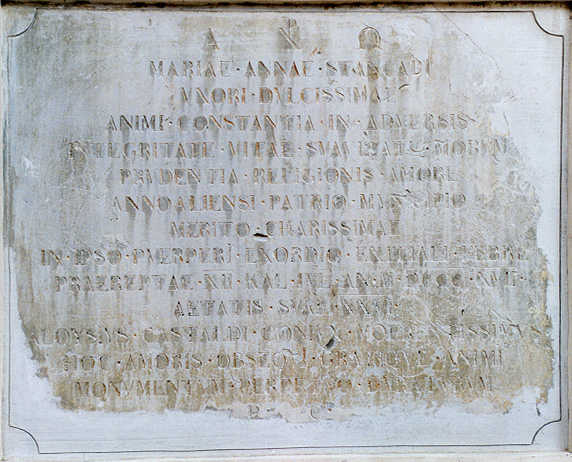 A ⳩ Ω
MARIAE · ANNAE · STANCADI
VXORI · DVLCISSIMAE
ANIMI · CONSTANTIA · IN · ADVERSIS
INTEGRITATE · VITAE · SVAVITATE · MORVM
PRVDENTIA · RELIGIONIS · AMORE
ANNOALIENSI · PATRIO · MVNICIPIO
MERITO · CHARISSIMAE
IN · IPSO · PVERPERI · EXORDIO · EXITIALI · FEBRE
PRAEREPTAE · KAL · AN · M · DCCC
AETATIS · SVAE
ALOYSIVS · CASTALDI · CONIVX · MOERENTISSIMVS
HOC · AMORIS · OBSEQVI · GRATIQVE · ANIMI
MONVMENTVM · PERPETVO
P · C